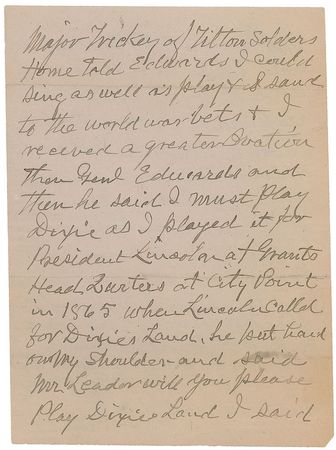 Major Trickey of Tilton Solders
Home told Edwards I could
sing as well as play & I sand
to the world war bets & I
receved a greater Ovation
then Genl Edwards and
then he said I must Play
Dixie as I played it for
President Lincoln at Grants
Head Qurters at City Point
in 1865 when Lincoln Calld
for Dixies Land. he put hand
on my Shoulder and said
Mr Leader will you please
Play Dixies Land I said